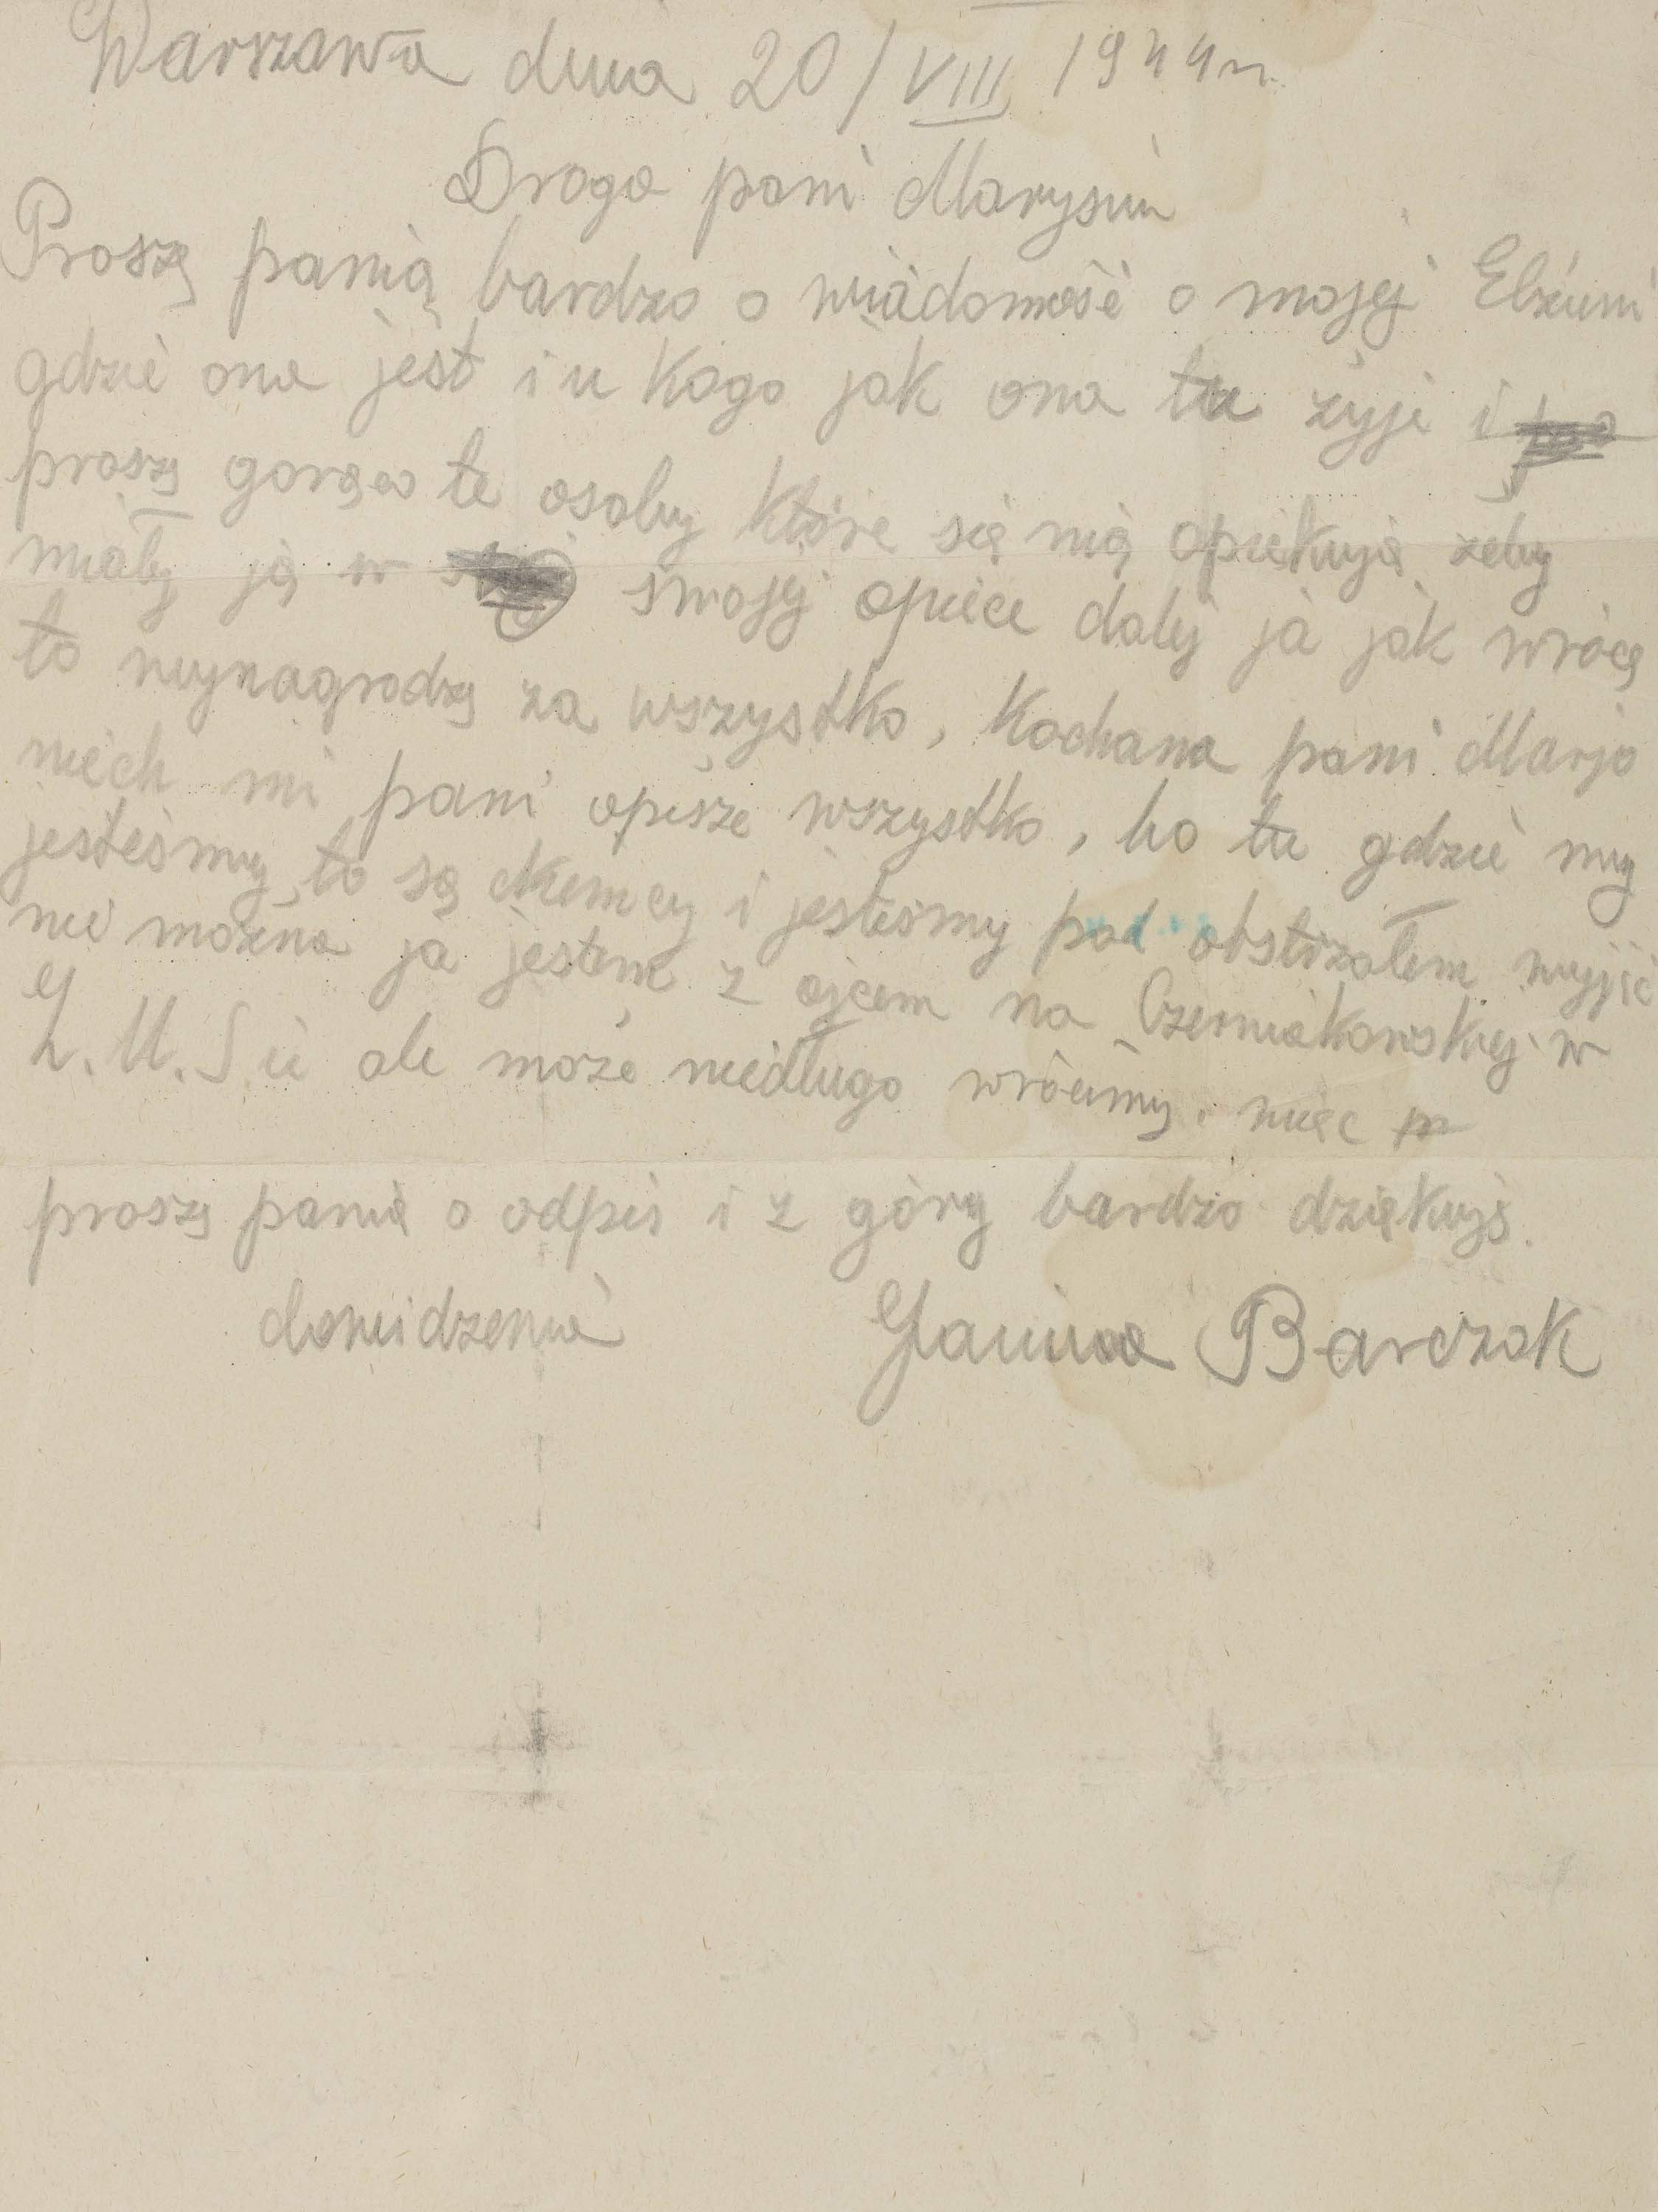 Warszawa dnia 20/VIII 1944 r.
Droga pani Marysiu
Proszę panią bardzo o wiadomość o mojej Elżuni
gdzie ona jest i u kogo jak ona tu żyje i
proszę gorąco te osoby które się nią opiekują żeby
miały ją w swojej opiece dalej ja jak wrócę
to wynagrodzę za wszystko, kochana pani Marjo
niech mi pani opisze wszystko, bo tu gdzie my
jesteśmy to są Niemcy i jesteśmy pod obstrzałem wyjść
nie można ja jestem z ojcem na Czerniakowskiej w
Z.U.S.ie ale może niedługo wrócimy. więc
proszę panią o odpis i z góry bardzo dziękuję.
dowidzenia Janina Barczak